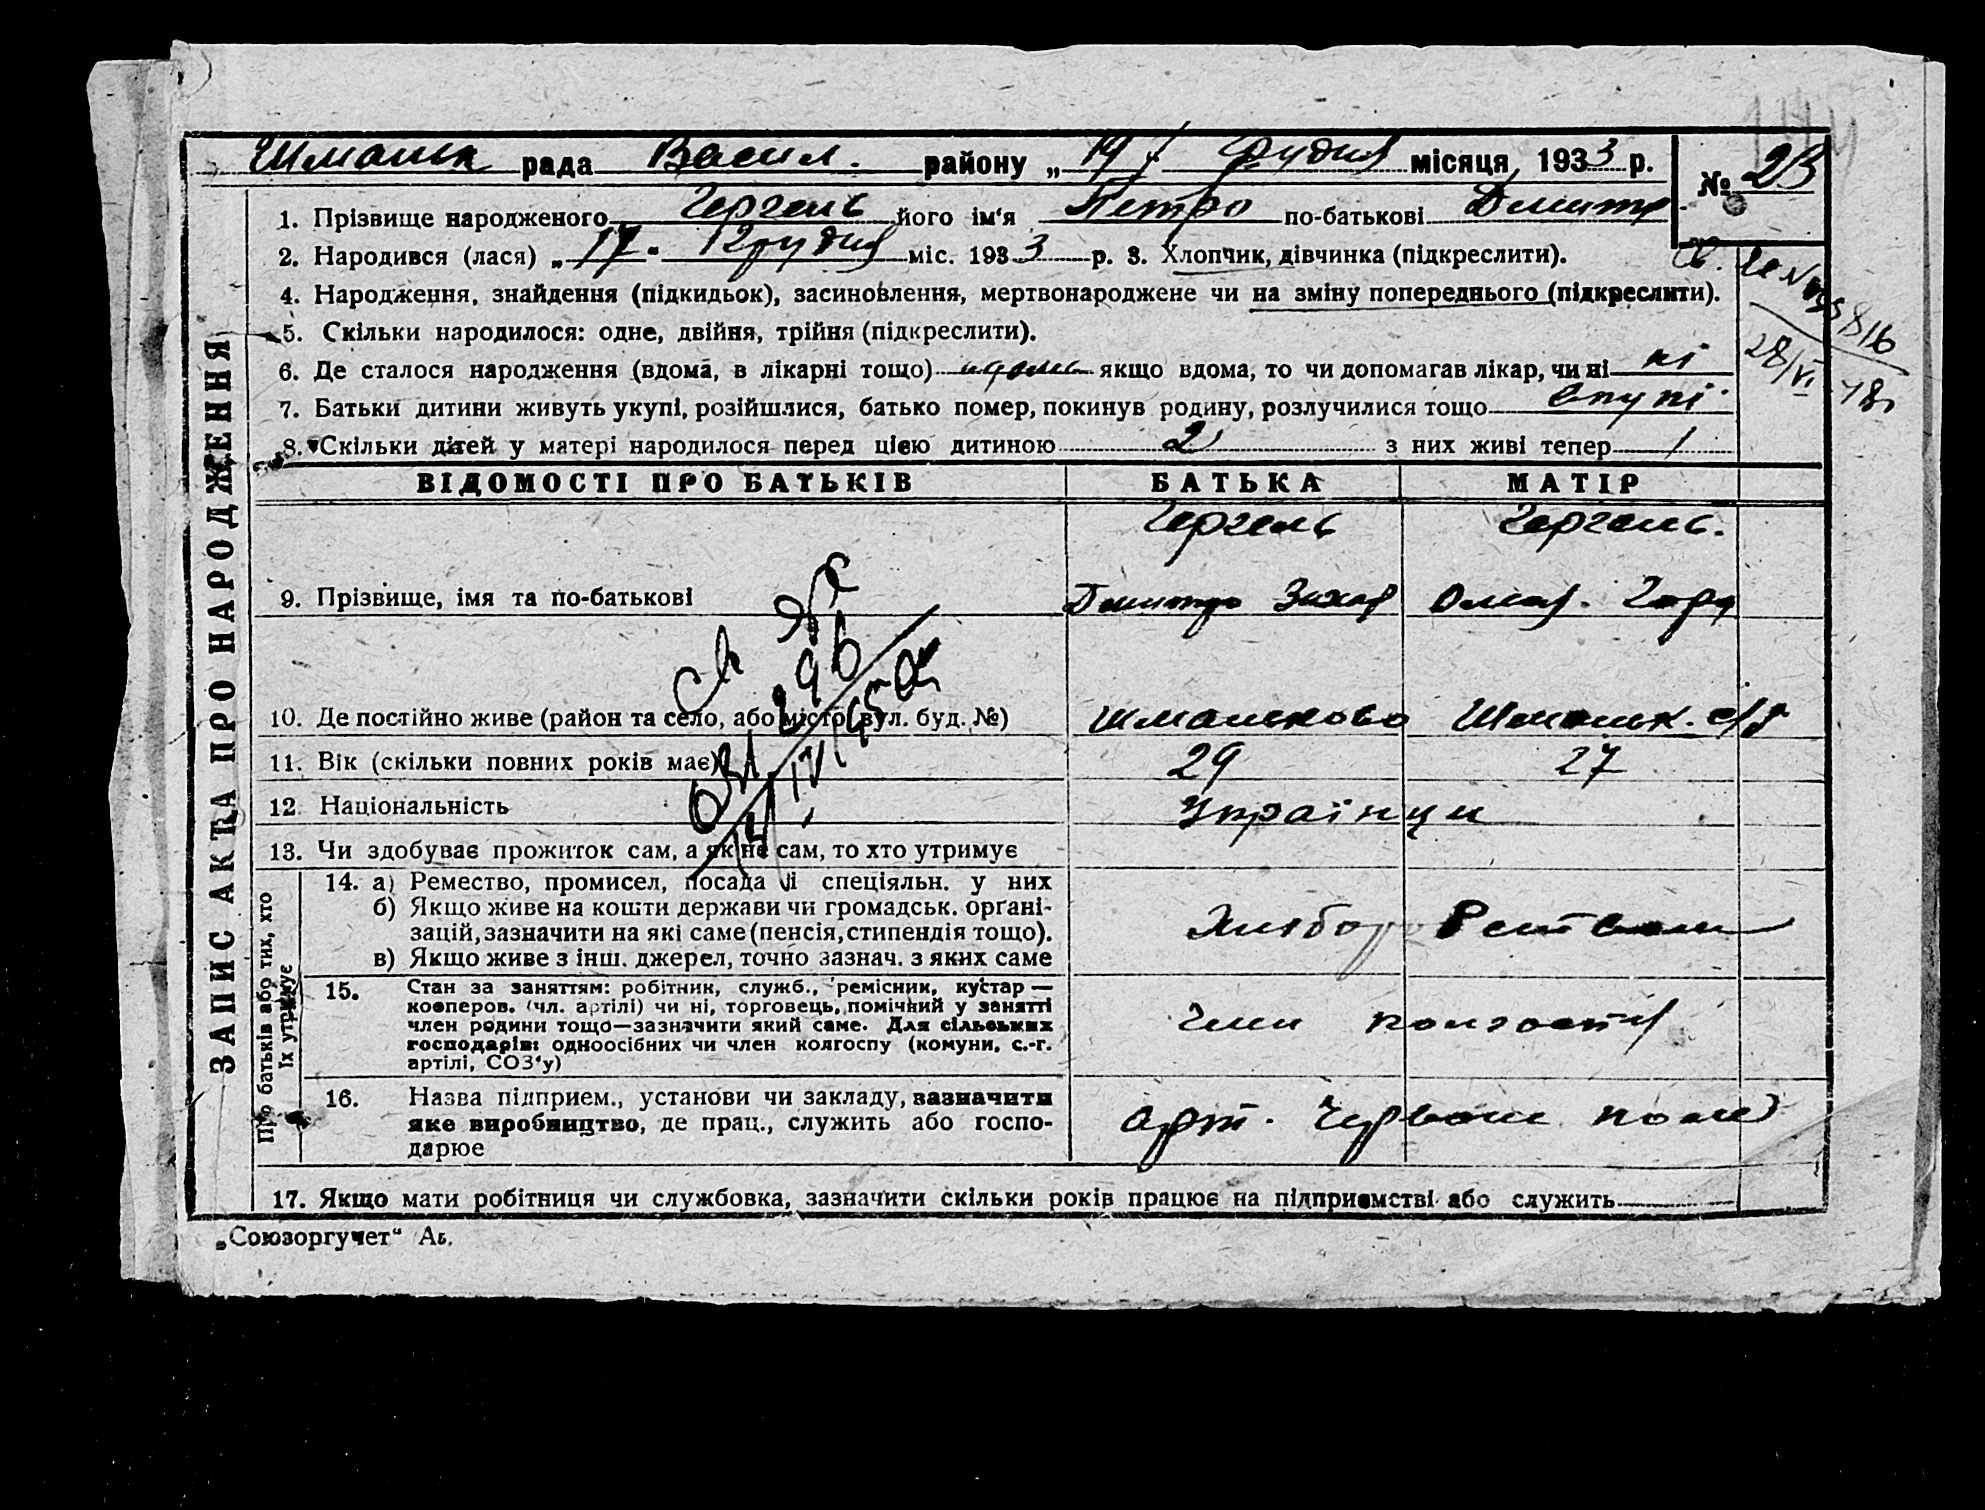 Шмальк рада Васил. району „19“ Грудня місяця, 1933 р. № 23
1. Прізвище народженого Гергель його ім‘я Петро по-батькові Дмитр
2. Народився (лася) „17“ Грудня міс. 1933 р. 3. Хлопчик, дівчинка (підкреслити).
4. Народження, знайдення (підкидьок), засиновлення, мертвонароджене чи на зміну попереднього (підкреслити).
5. Скільки народилося: одне, двійня, трійня (підкреслити).
6. Де сталося народження (вдома, в лікарні тощо) вдома якщо вдома, то чи допомагав лікар, чи ні ні
7. Батьки дитини живуть укупі, розійшлися, батько помер, покинув родину, розлучилися тощо вкупі
8. Скільки дітей у матері народилося перед цією дитиною 2 з них живі тепер 1
28/VI-78
ЗАПИС АКТА ПРО НАРОДЖЕННЯ
ВІДОМОСТІ ПРО БАТЬКІВ БАТЬКА МАТІР
Гергель Гергель.
9. Прізвище, імя та по-батькові Дмитро Захар
10. Де постійно живе (район та село, або місто, вул. буд. №) Шмальково Шмальк. с/р
11. Вік (скільки повних років має) 29 27
12 Національність Українци
13. Чи здобуває прожиток сам, а як не сам, то хто утримує
Про батьків або тих, хто
їх утримує
14. а) Ремество, промисел, посада й спеціяльн. у них
б) Якщо живе на кошти держави чи громадськ. органі-
зацій, зазначити на які саме (пенсія, стипендія тощо).
в) Якщо живе з інш. джерел, точно зазнач. з яких саме
Хлібороб
15. Стан за заняттям: робітник, служб., ремісник, кустар —
кооперов. (чл. артілі) чи ні, торговець, помічний у занятті
член родини тощо—зазначити який саме. Для сільських
господарів: одноосібних чи член колгоспу (комуни, с.-г.
артілі, СОЗ‘у)
Член колгоспу
16. Назва підприєм., установи чи закладу, зазначити
яке виробництво, де прац., служить або госпо-
дарює
арт. Червоне поле
17. Якщо мати робітниця чи службовка, зазначити скільки років працює на підприємстві або служить
„Союзоргучет“ Аь.